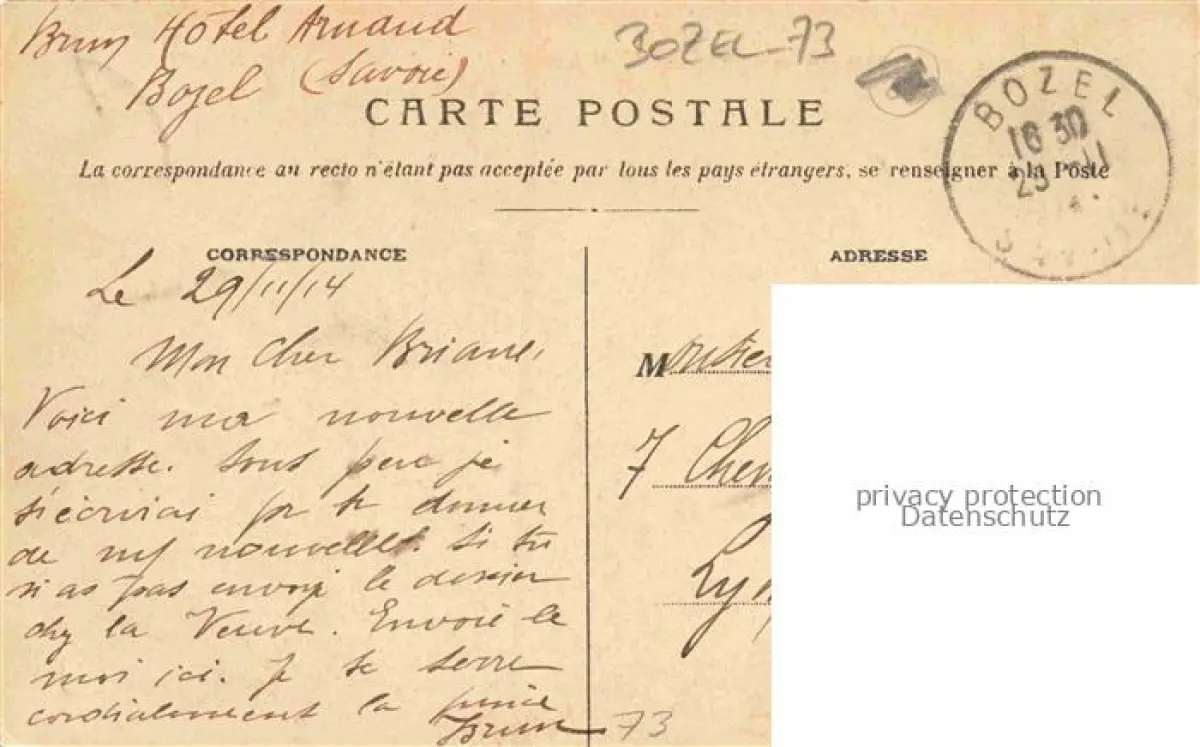 Brun Hôtel Arnaud
Bozel (Savoie)
BOZEL-73
CARTE POSTALE
La correspondance au recto n'étant pas acceptée par tous les pays étrangers, se renseigner à la Poste
BOZEL
16 30
29 11
SAVOIE
CORRESPONDANCE
Le 29/11/14
Mon Cher Briane,
Voici ma nouvelle
adresse. Sous peu je
t'écrirai pr te donner
de mes nouvelles. Si tu
n'as pas envoyé le dessin
chez la Veuve. Envoie le
moi ici. Je te serre
cordialement la
Brun
73
ADRESSE
M
7 Chem
Ly
privacy protection
Datenschutz